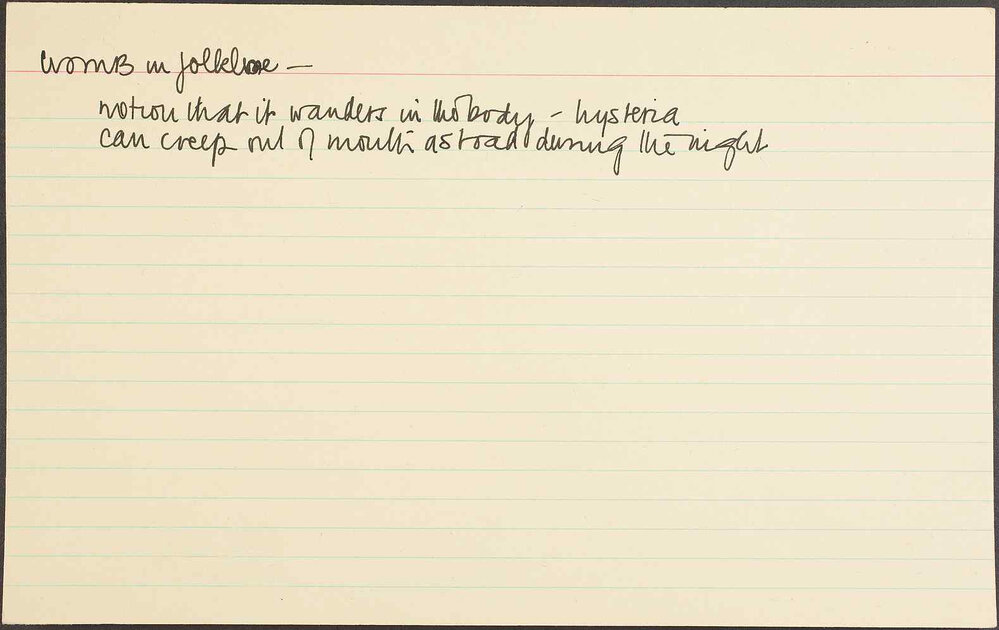 womb in folklore —
notion that it wanders in the body - hysteria
can creep out of mouth as toad during the night